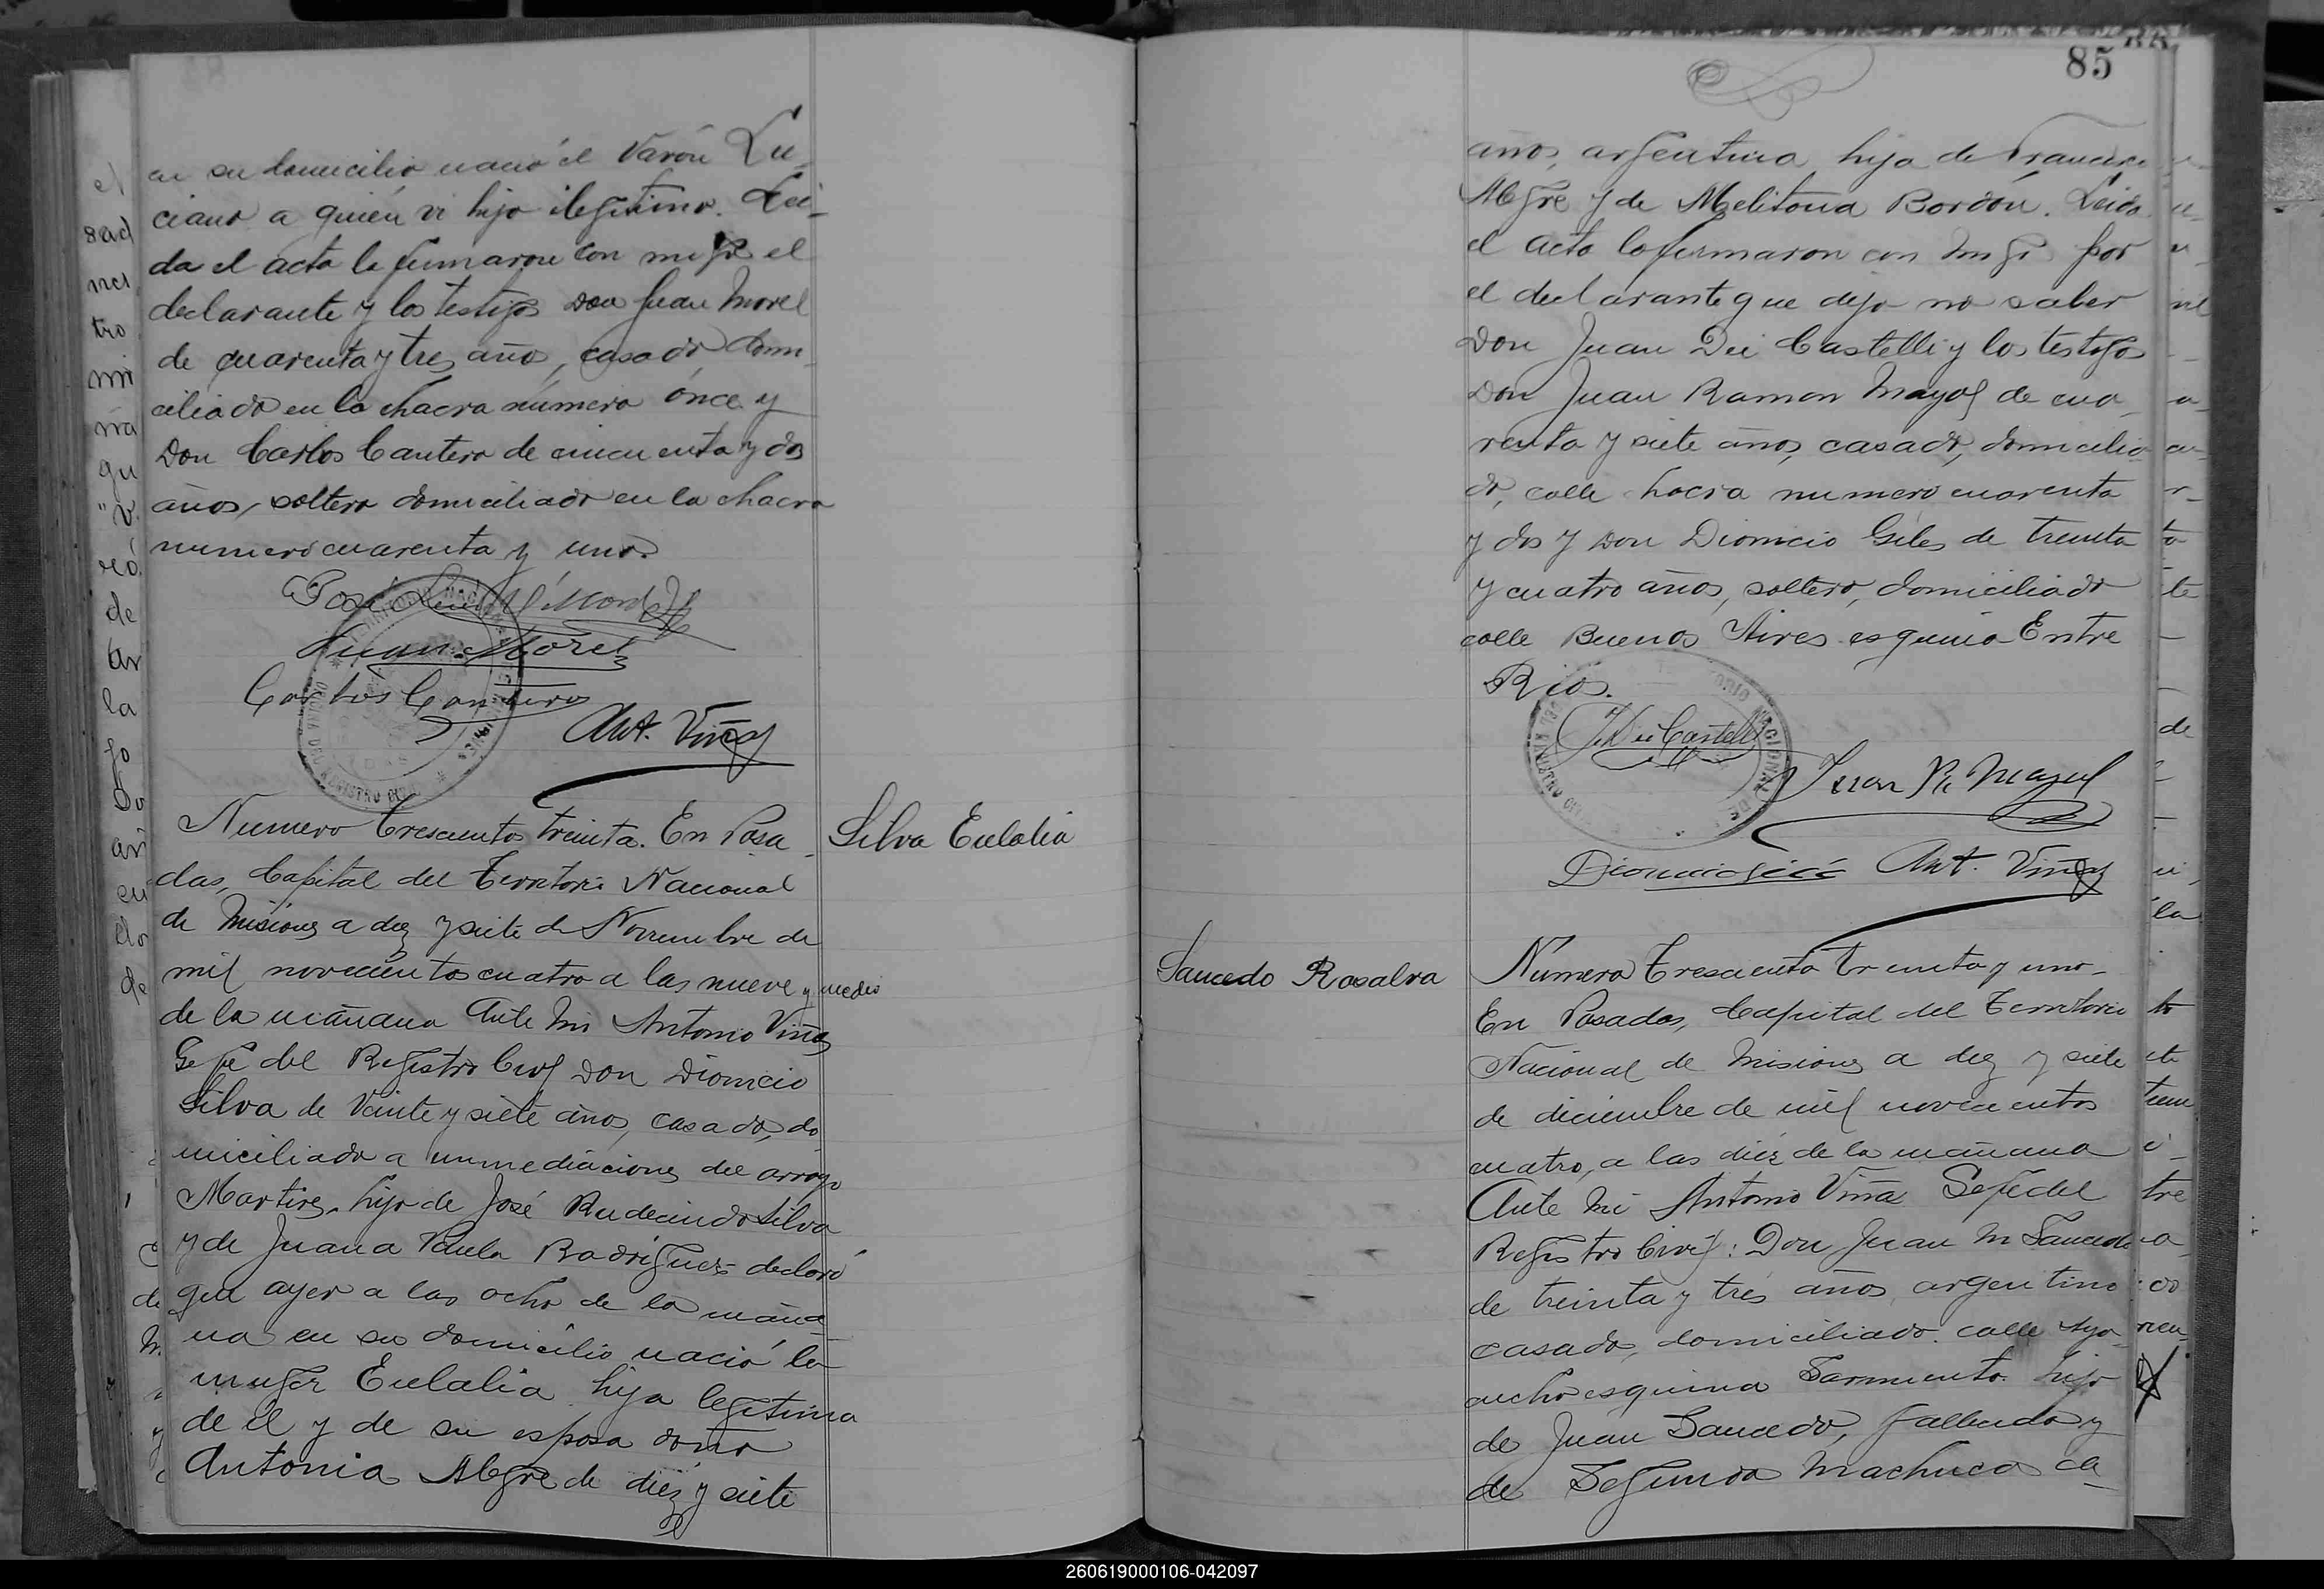 en su domicilio nació el varón Lu-
ciano a quién vi hijo ilegitimo. Lei-
da el acta la firmaron con migo el
declarante y los testigos Don Juan Morel
de cuarenta y tres años, casado domi-
ciliado en la chacra número ónce y
Don Carlos Cantero de cincuenta y dos
años, soltero domiciliado en la chacra
numero cuarenta y uno.
Juan Morel
Carlos Cantero
Ant. Viñas
Numero Trescientos treinta. En Posa-
Silva Eulalia
das, Capital del Territorio Nacional
de Misiones a diez y siete de Noviembre de
mil novecientos cuatro a las nueve y media
de la mañana Ante mi Antonio Viñas
Gefe del Registro Civil Don Dionicio
Silva de Veinte y siete años, casado, do
miciliado a inmediaciones del arroyo
Martires, hijo de José Rudecindo Silva
y de Juana Paula Rodríguez declaró
que ayer a las ocho de la maña-
na en su domicilio nació la
muger Eulalia hija legitima
de el y de su esposa doña
Antonia Alegre de diez y siete
85
años, argentina, hija de Francisco
Alegre y de Melitona Bordón. Leida
el acta la firmaron con migo por
el declarante que dijo no saber
Don Juan Dei Castelli y los testigos
Don Juan Ramon Mayol de cua-
renta y siete años, casado, domicilia-
do, calle hacra numero cuarenta
y dos y Don Dionicio Giles de treinta
y cuatro años, soltero, domiciliado
calle Buenos Aires esquina Entre
Rios.
J Dei Castelli
Juan R. Mayol
Ant. Viñas
Saucedo Rosalva
Número Trescientos treinta y uno-
En Posadas, Capital del Territorio
Nacional de Misiones a diez y siete
de diciembre de mil novecientos
cuatro, a las diez de la mañana
Ante mi Antonio Viña Gefe del
Registro Civil: Don Juan M Saucedo
de treinta y tres años argentino
casado, domiciliado calle Aya-
cucho esquina Sarmiento hijo
de Juan Saucedo, fallecido y
de Segunda Machuca ca-
260619000106-042097